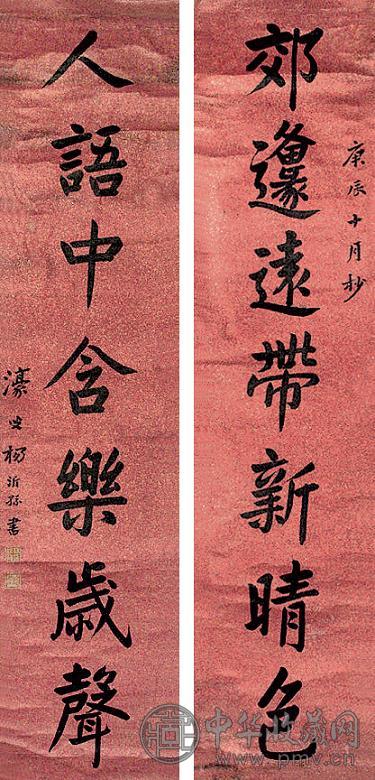 郊邍遠帶新晴色
庚辰十月杪
人語中含樂歲聲
濠叟楊沂孫書
中华收藏网
www.pmv.cn